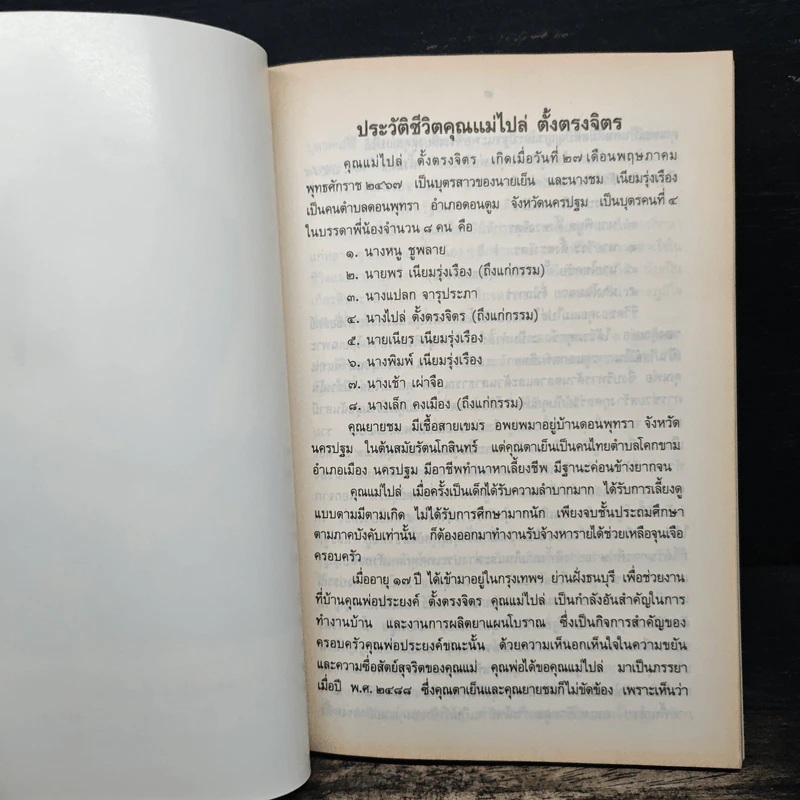 ประวัติชีวิตคุณแม่ไปล่ ตั้งตรงจิตร
คุณแม่ไปล่ ตั้งตรงจิตร เกิดเมื่อวันที่ ๒๗ เดือนพฤษภาคม
พุทธศักราช ๒๔๖๗ เป็นบุตรสาวของนายเย็น และนางชม เนียมรุ่งเรือง
เป็นคนตำบลดอนพุทรา อำเภอดอนตูม จังหวัดนครปฐม เป็นบุตรคนที่ ๔
ในบรรดาพี่น้องจำนวน ๘ คน คือ
๑. นางหนู ชูพลาย
๒. นายพร เนียมรุ่งเรือง (ถึงแก่กรรม)
๓. นางแปลก จารุประภา
๔. นางไปล่ ตั้งตรงจิตร (ถึงแก่กรรม)
๕. นายเนียร เนียมรุ่งเรือง
๖. นางพิมพ์ เนียมรุ่งเรือง
๗. นางเช้า เผ่าจือ
๘. นางเล็ก คงเมือง (ถึงแก่กรรม)
คุณยายชม มีเชื้อสายเขมร อพยพมาอยู่บ้านดอนพุทรา จังหวัด
นครปฐม ในต้นสมัยรัตนโกสินทร์ แต่คุณตาเย็นเป็นคนไทยตำบลโคกขาม
อำเภอเมือง นครปฐม มีอาชีพทำนาหาเลี้ยงชีพ มีฐานะค่อนข้างยากจน
คุณแม่ไปล่ เมื่อครั้งเป็นเด็กได้รับความลำบากมาก ได้รับการเลี้ยงดู
แบบตามมีตามเกิด ไม่ได้รับการศึกษามากนัก เพียงจบชั้นประถมศึกษา
ตามภาคบังคับเท่านั้น ก็ต้องออกมาทำงานรับจ้างหารายได้ช่วยเหลือจุนเจือ
ครอบครัว
เมื่ออายุ ๑๗ ปี ได้เข้ามาอยู่ในกรุงเทพฯ ย่านฝั่งธนบุรี เพื่อช่วยงาน
ที่บ้านคุณพ่อประยงค์ ตั้งตรงจิตร คุณแม่ไปล่ เป็นกำลังอันสำคัญในการ
ทำงานบ้าน และงานการผลิตยาแผนโบราณ ซึ่งเป็นกิจการสำคัญของ
ครอบครัวคุณพ่อประยงค์ขณะนั้น ด้วยความเห็นอกเห็นใจในความขยัน
และความซื่อสัตย์สุจริตของคุณแม่ คุณพ่อได้ขอคุณแม่ไปล่ มาเป็นภรรยา
เมื่อปี พ.ศ. ๒๔๘๘ ซึ่งคุณตาเย็นและคุณยายชมก็ไม่ขัดข้อง เพราะเห็นว่า